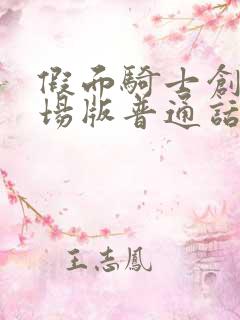 假面騎士創
場版普通話
王志鳳